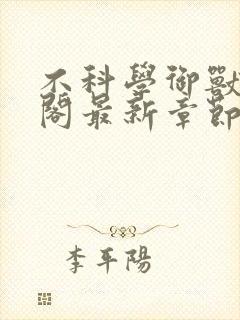 不科學御獸
閣最新章節
李平陽